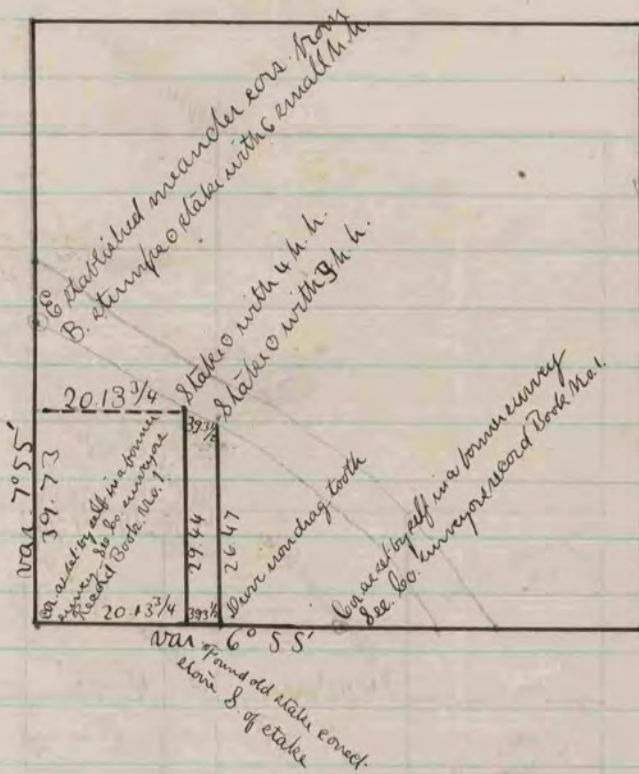 Established meander cors. from
B. stumps o stake with 6 small h.h.
Stake o with 4 h.h.
Stake o with 9 h.h.
20.13 3/4
39 3 1/2
var. 7° 55'
39.73
Cor. as set by self in a former
survey See Co. surveyors
Record Book No. 1
29.44
26.47
Durr iron drag tooth
Cor as set by self in a former survey
See. Co. surveyors record Book No. 1.
20.13 3/4
393 1/2
var. 6° 55'
Found old stake correct.
stone S. of stake